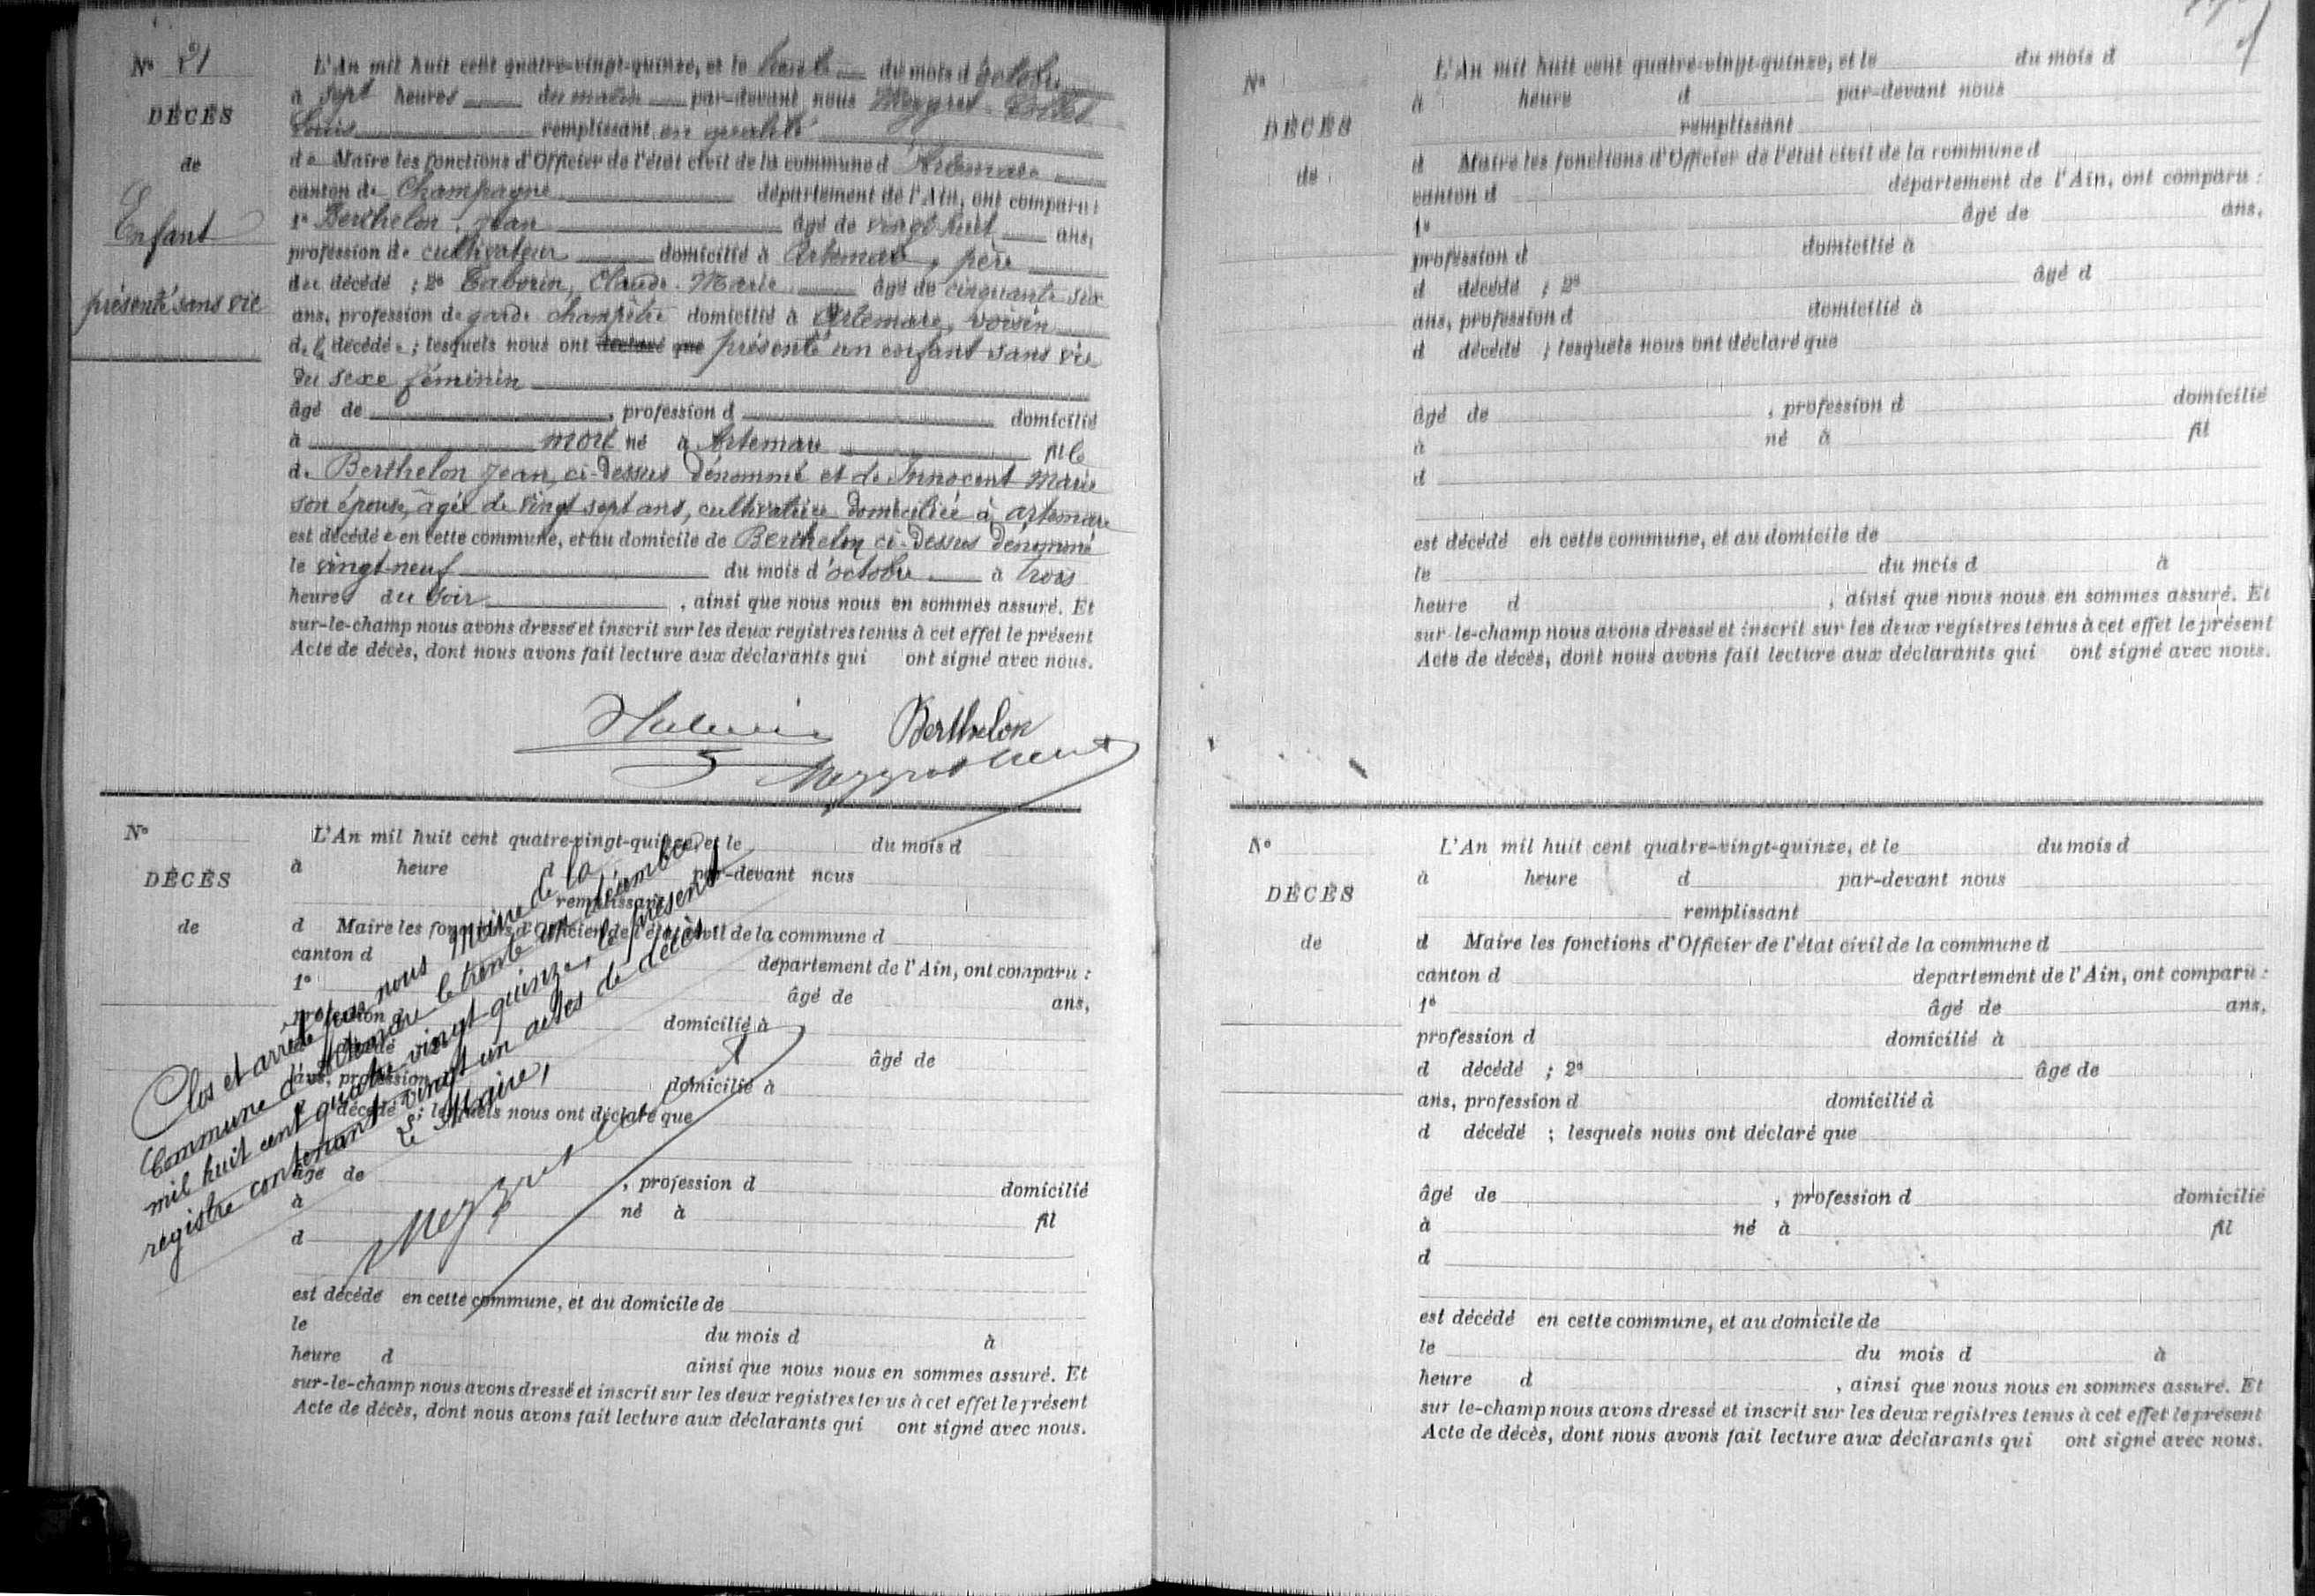 N° 21
DÉCÈS
de
Enfant
présenté sans vie
L'An mil huit cent quatre-vingt-quinze, et le trente du mois d'octobre
à sept heures du matin par-devant nous Meygret-Collet
Louis remplissant en qualité
de Maire les fonctions d'Officier de l'état civil de la commune d'Artemare
canton de Champagne département de l'Ain, ont comparu :
1° Berthelon, Jean âgé de vingt-huit ans,
profession de cultivateur domicilié à Artemare, père
du décédé ; 2° Taborin, Claude-Marie âgé de cinquante six
ans, profession de garde champêtre domicilié à Artemare, voisin
de la décédée ; lesquels nous ont déclaré que présenté un enfant sans vie
du sexe féminin
âgé de , profession d domicilié
à mort né à Artemare fille
de Berthelon Jean, ci-dessus dénommé et de Innocent Marie
son épouse, âgée de vingt sept ans, cultivatrice domiciliée à artemare
est décédée en cette commune, et au domicile de Berthelon ci-dessus dénommé
le vingt-neuf du mois d'octobre à trois
heures du soir , ainsi que nous nous en sommes assuré. Et
sur-le-champ nous avons dressé et inscrit sur les deux registres tenus à cet effet le présent
Acte de décès, dont nous avons fait lecture aux déclarants qui ont signé avec nous.
Berthelon
N°
DÉCÈS
de
L'An mil huit cent quatre-vingt-quinze, et le du mois d
à heure d par-devant nous
remplissant
d Maire les fonctions d'Officier de l'état civil de la commune d
canton d département de l'Ain, ont comparu :
1° âgé de ans,
profession d domicilié à
d décédé âgé de
ans, profession domicilié à
décédé ; lesquels nous ont déclaré que
âgé de , profession d domicilié
à né à fil
d
est décédé en cette commune, et au domicile de
le du mois d à
heure d ainsi que nous nous en sommes assuré. Et
sur-le-champ nous avons dressé et inscrit sur les deux registres tenus à cet effet le présent
Acte de décès, dont nous avons fait lecture aux déclarants qui ont signé avec nous.
Clos et arrêté par nous Maire de la
Commune d'Artemare le trente un décembre
mil huit cent quatre-vingt-quinze, le présent
registre contenant vingt un actes de décès
Le Maire,
N°
DÉCÈS
de
L'An mil huit cent quatre-vingt-quinze, et le du mois d
à heure d par-devant nous
remplissant
d Maire les fonctions d'Officier de l'état civil de la commune d
canton d département de l'Ain, ont comparu :
1° âgé de ans,
profession d domicilié à
d décédé ; 2° âgé d
ans, profession d domicilié à
d décédé ; lesquels nous ont déclaré que
âgé de , profession d domicilié
à né à fil
d
est décédé en cette commune, et au domicile de
le du mois d à
heure d , ainsi que nous nous en sommes assuré. Et
sur-le-champ nous avons dressé et inscrit sur les deux registres tenus à cet effet le présent
Acte de décès, dont nous avons fait lecture aux déclarants qui ont signé avec nous.
N°
DÉCÈS
de
L'An mil huit cent quatre-vingt-quinze, et le du mois d
à heure d par-devant nous
remplissant
d Maire les fonctions d'Officier de l'état civil de la commune d
canton d département de l'Ain, ont comparu :
1° âgé de ans,
profession d domicilié à
d décédé ; 2° âgé de
ans, profession d domicilié à
d décédé ; lesquels nous ont déclaré que
âgé de , profession d domicilié
à né à fil
d
est décédé en cette commune, et au domicile de
le du mois d à
heure d , ainsi que nous nous en sommes assuré. Et
sur le-champ nous avons dressé et inscrit sur les deux registres tenus à cet effet le présent
Acte de décès, dont nous avons fait lecture aux déclarants qui ont signé avec nous.